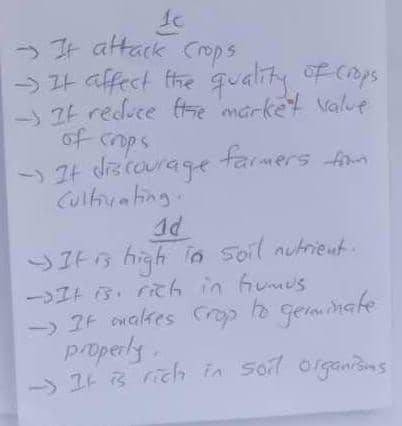 1c
→ It attack crops
→ It affect the quality of crops
→ It reduce the market value
of crops
→ It discourage farmers from
cultivating.
1d
→ It is high in soil nutrient.
→ It is. rich in humus
→ It makes crop to germinate
properly.
→ It is rich in soil organisms